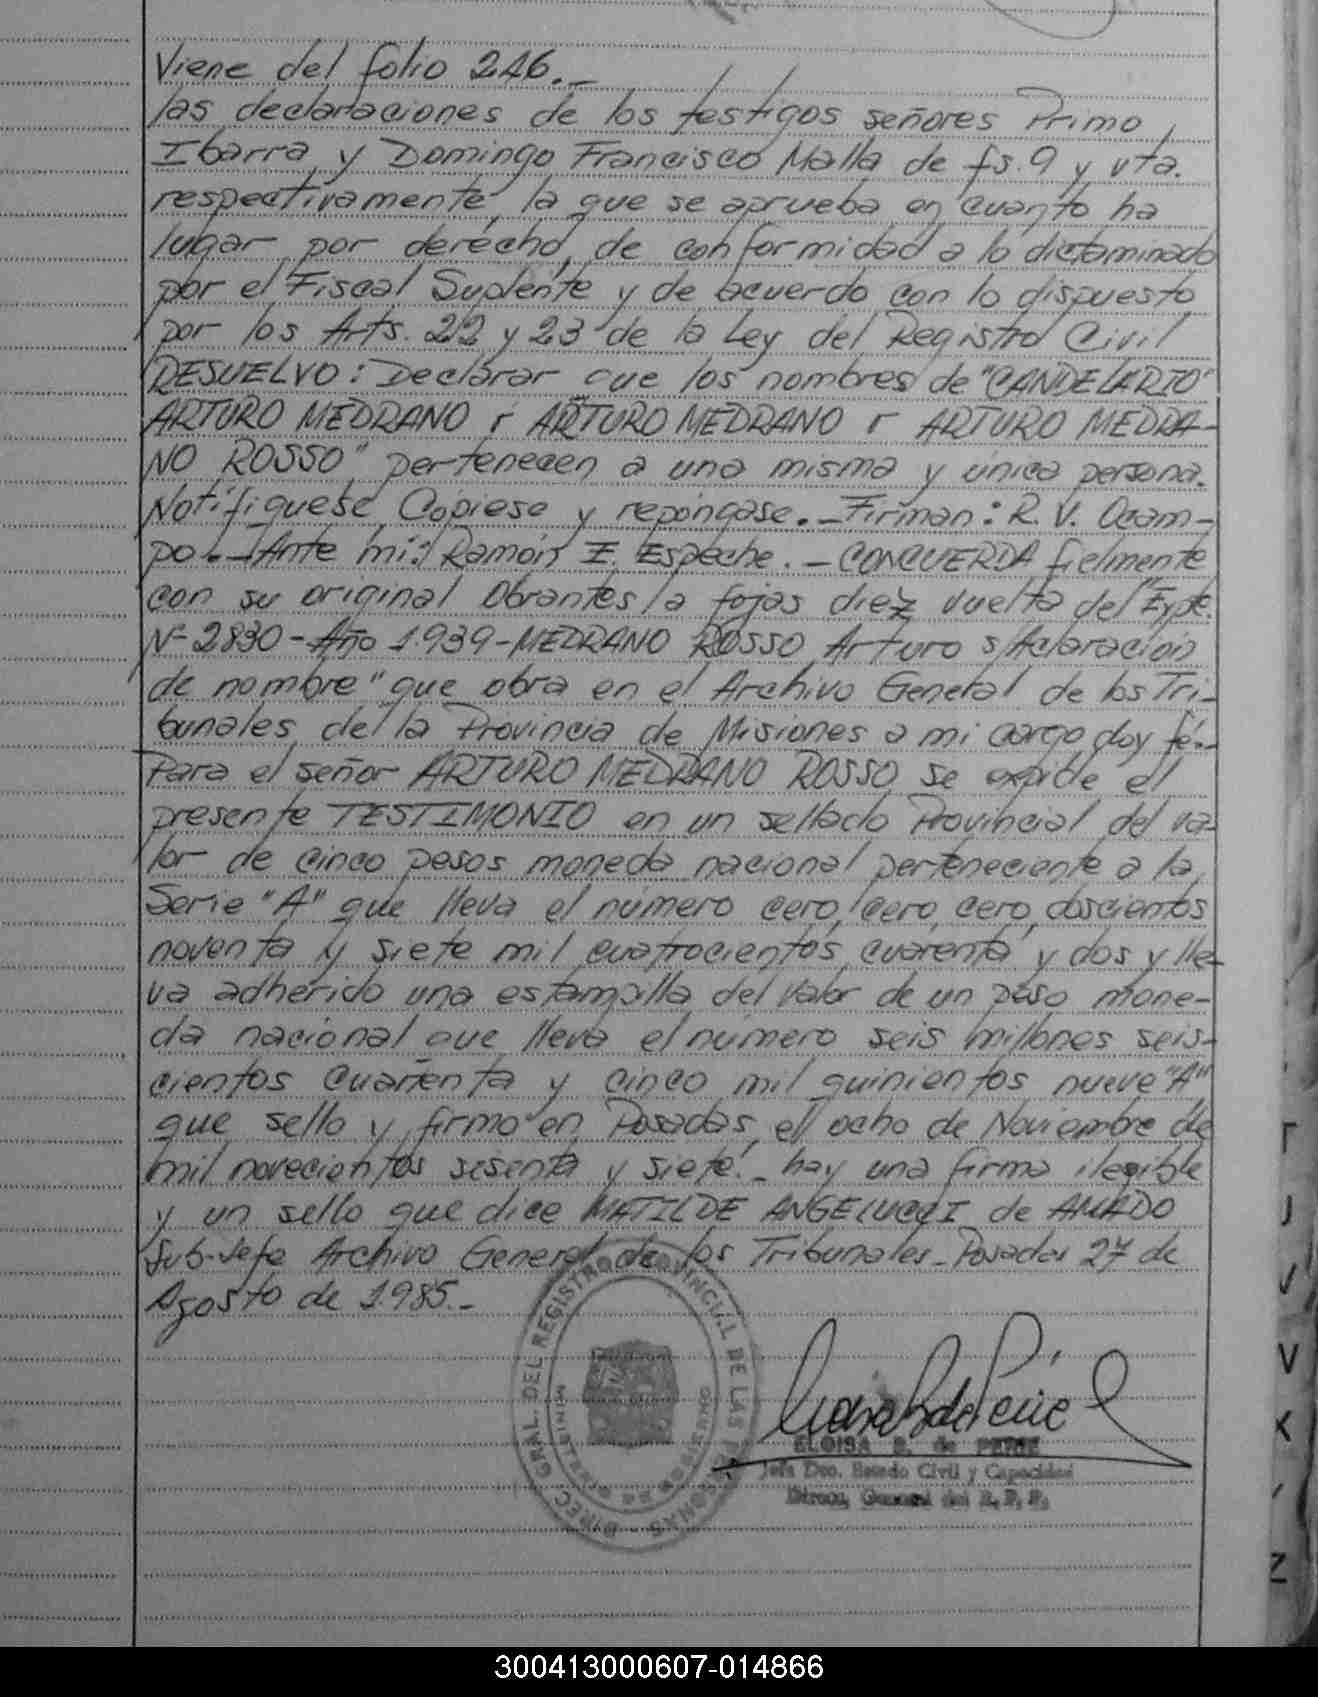 Viene del folio 246.-
las declaraciones de los testigos señores Primo
Ibarra y Domingo Francisco Malla de fs. 9 y vta.
respectivamente, la que se aprueba en cuanto ha
lugar por derecho, de conformidad a lo dictaminado
por el Fiscal Suplente y de acuerdo con lo dispuesto
por los Arts. 22 y 23 de la Ley del Registro Civil
RESUELVO: Declarar que los nombres de "CANDELARIO
ARTURO MEDRANO ó ARTURO MEDRANO ó ARTURO MEDRA-
NO ROSSO" pertenecen a una misma y única persona.
Notifíquese Cópiese y repóngase.- Firman: R. V. Ocam-
po.- Ante mí: Ramón E. Espeche.- CONCUERDA fielmente
con su original Obrantes a fojas diez vuelta del "Expe.
Nº 2830-Año 1.939-MEDRANO ROSSO Arturo s/Aclaración
de nombre" que obra en el Archivo General de los Tri-
bunales de la Provincia de Misiones a mi cargo doy fé.-
Para el señor ARTURO MEDRANO ROSSO se expide el
presente TESTIMONIO en un sellado Provincial del va-
lor de cinco pesos moneda nacional perteneciente a la
Serie "A" que lleva el número cero, cero, cero, doscientos
noventa y siete mil cuatrocientos cuarenta y dos y lle-
va adherido una estampilla del valor de un peso mone-
da nacional que lleva el número seis millones seis-
cientos cuarenta y cinco mil quinientos nueve "A"
que sello y firmo en Posadas, el ocho de Noviembre de
mil novecientos sesenta y siete.- hay una firma ilegible
y un sello que dice MATILDE ANGELUCCI de AMADO
Sub-Jefe Archivo General de los Tribunales - Posadas 27 de
Agosto de 1.985.-
DIREC. GRAL. DEL REGISTRO PROVINCIAL DE LAS PERSONAS
MINISTERIO DE GOBIERNO
ELOISA B. de PEIRE
Jefa Dto. Estado Civil y Capacidad
Direcc. General del R. P. P.
T
J
V
K
Y
Z
300413000607-014866